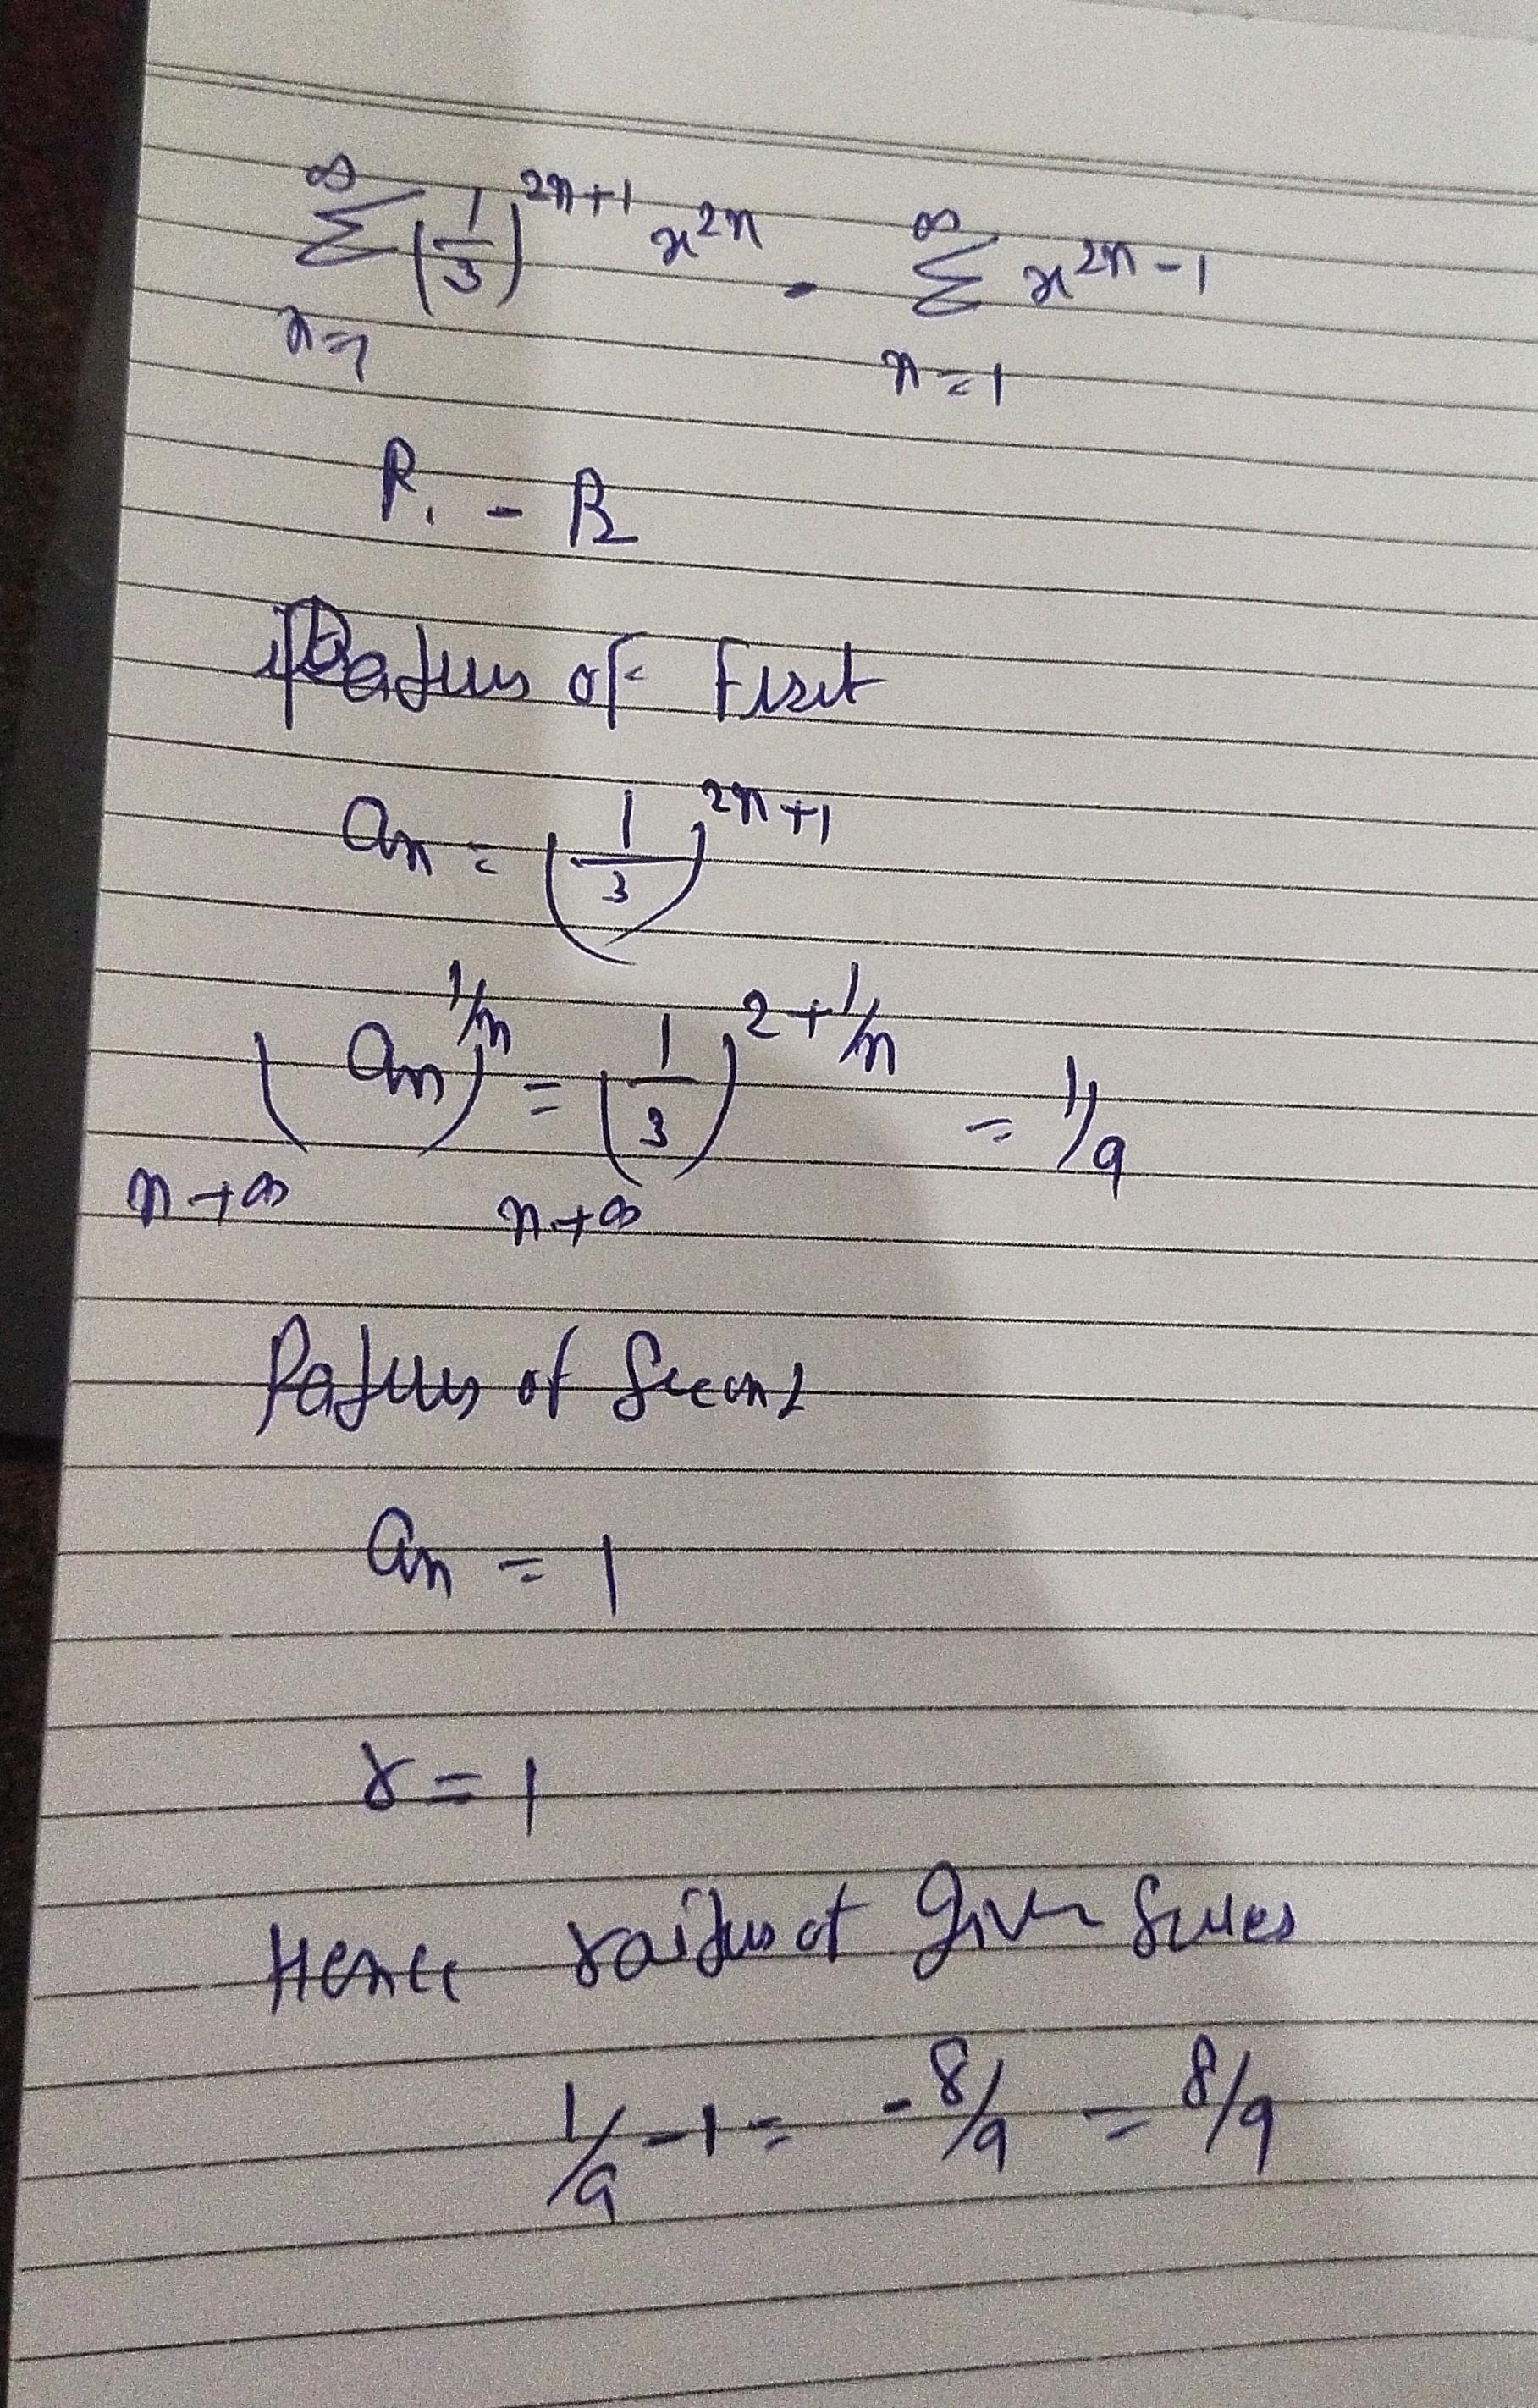 ∞ Σ n=1 (1/3)^2n+1 x^2n - ∞ Σ n=1 x^2n-1
R1 - R2
Radius of First
an = (1/3)^2n+1
(an)^1/n n→∞ = (1/3)^2+1/n n→∞ = 1/9
Radius of Second
an = 1
r = 1
Hence raidus of Given Series
1/9 - 1 = -8/9 = 8/9